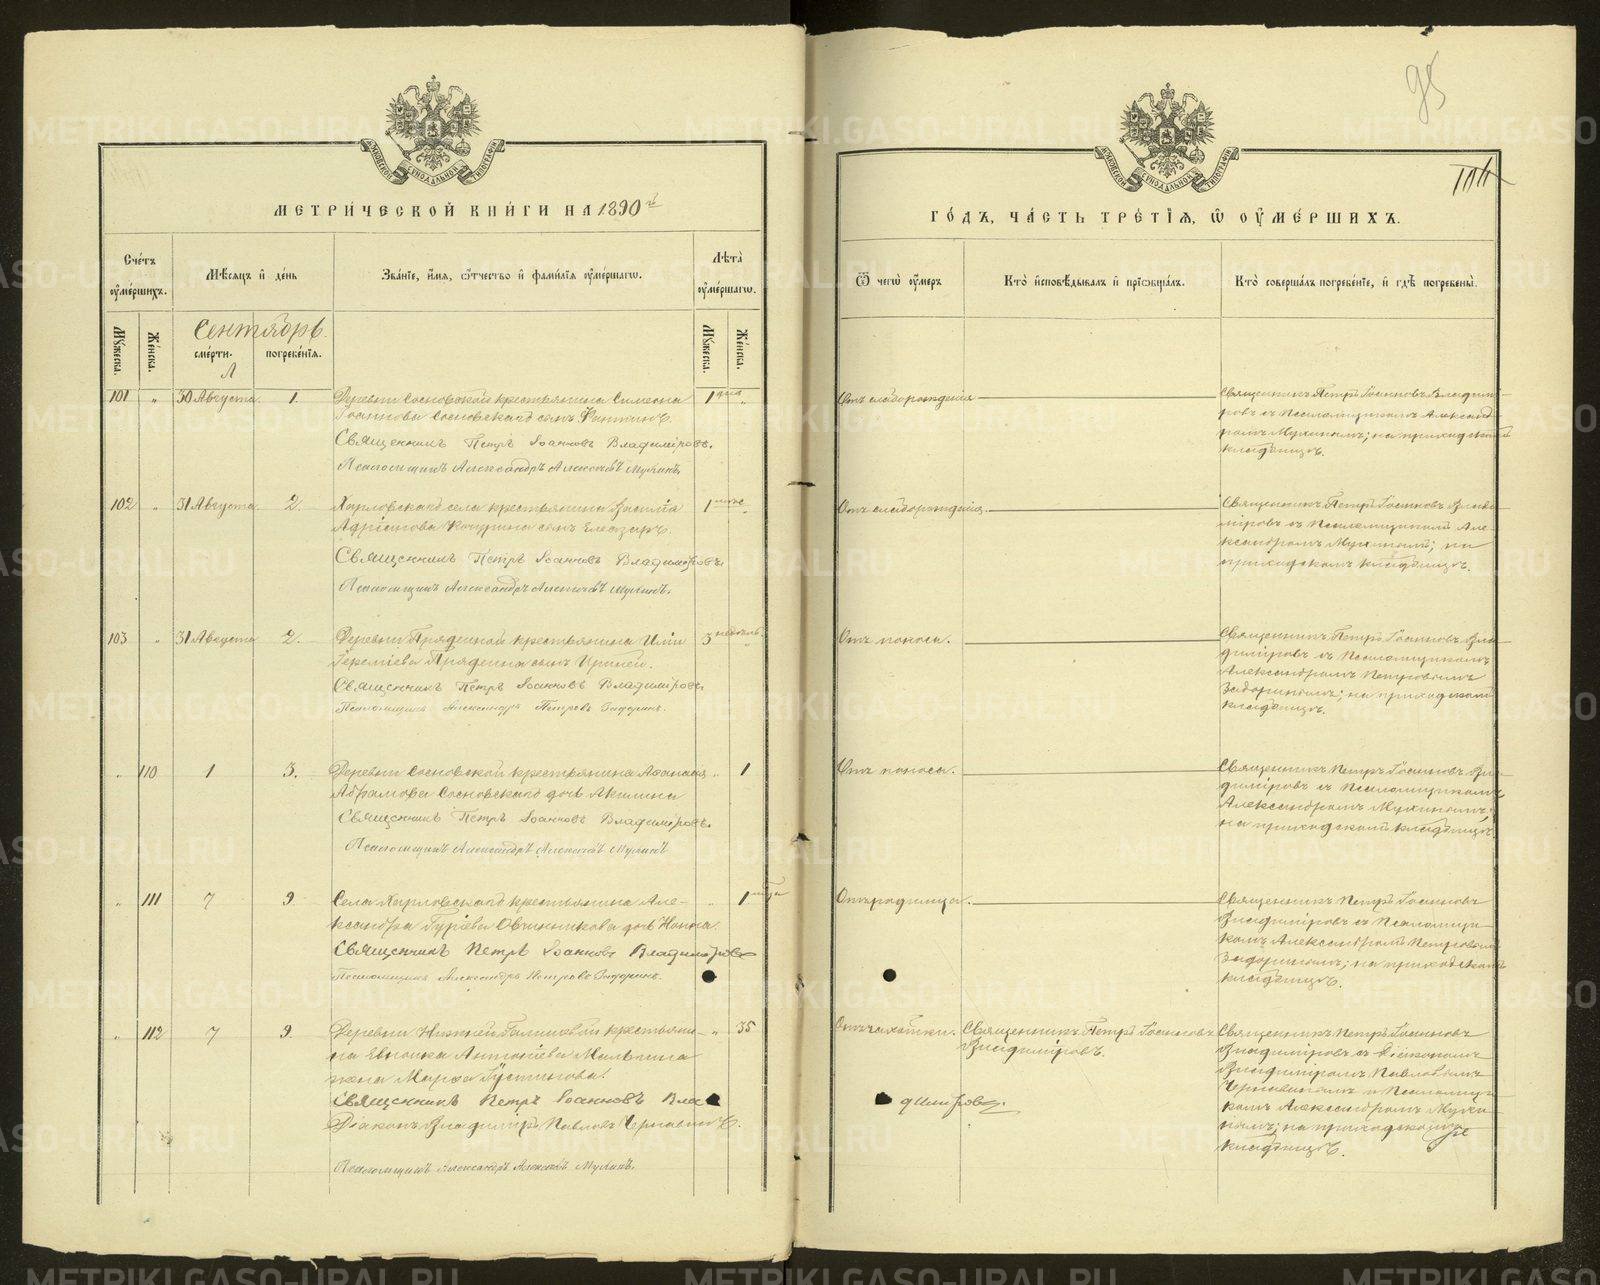 95
МЕТРИ́ЧЕСКОЙ КНИ́ГИ НА 1890 й
Сче́тъ оу҆ме́ршихъ.
Мѣ́сяцъ и҆ де́нь
Зва́нїе, и҆́мя, ѻ҆́тчество и҆ фами́лїя оу҆ме́ршагѡ.
Лѣта̀ оу҆ме́ршагѡ.
Мꙋ́жеска.
Же́нска.
Сентябрь.
сме́рти.
погребе́нїя.
Мꙋ́жеска.
Же́нска.
101 " 30 Августа 1. Деревни Сосновской крестьянина Симеона 1 дня "
Іоаннова Сосновскаго сынъ
Священникъ Петръ Іоанновъ Владиміровъ.
Псаломщикъ Александръ Алексѣевъ Мухинъ.
102 " 31 Августа 2. Харловскаго села крестьянина Василія 1 "
Адріанова Кочурина сынъ Елеазаръ.
Священникъ Петръ Іоанновъ Владиміровъ.
Псаломщикъ Александръ Алексѣевъ Мухинъ.
103 " 31 Августа 2. Деревни Прядеиной крестьянина Иліи 3 недѣль "
Іереміева Прядеина сынъ Ириней.
Священникъ Петръ Іоанновъ Владиміровъ
Псаломщикъ Александръ Петровъ Задоринъ.
" 110 1 3. Деревни Сосновской крестьянина Аѳанасія " 1
Абрамова Сосновскаго дочь Акилина
Священникъ Петръ Іоанновъ Владиміровъ.
Псаломщикъ Александръ Алексѣевъ Мухинъ
" 111 7 9 Села Харловскаго крестьянина Але- " 1
ксандра Гуріева Овчинникова дочь Нонна.
Священникъ Петръ Іоанновъ Владиміровъ
Псаломщикъ Александръ Петровъ Задоринъ.
" 112 7 9. Деревни крестьяни- " 35
на Антоніева
жена Марѳа Іустинова.
Священникъ Петръ Іоанновъ Вла
Діаконъ Владиміръ Павловъ Чернавинъ.
Псаломщикъ Александръ Алексѣевъ Мухинъ.
ГО́ДЪ, ЧА́СТЬ ТРЕ́ТЇЯ, Ѡ҆ ОУ҆МЕ́РШИХЪ.
Ѿ чегѡ̀ оу҆́меръ
Кто̀ и҆сповѣ́дывалъ и҆ прїѻбща́лъ.
Кто̀ соверша́лъ погребе́нїе, и҆ гдѣ̀ погребены̀.
Отъ слаборожденія Священникъ Петръ Іоанновъ Владимі-
ровъ съ Псаломщикомъ Александ-
ромъ Мухинымъ; на приходскомъ
кладбищѣ.
Отъ слаборожденія. Священникъ Петръ Іоанновъ Влад-
міровъ съ Псаломщикомъ Але-
ксандромъ Мухинымъ; на
приходскомъ кладбищѣ.
Отъ поноса. Священникъ Петръ Іоанновъ Вла-
диміровъ съ Псаломщикомъ
Александромъ Петровымъ
Задоринымъ; на приходскомъ
кладбищѣ.
Отъ поноса. Священникъ Петръ Іоанновъ Вла-
диміровъ съ Псаломщикомъ
Александромъ Мухинымъ;
на приходскомъ кладбищѣ.
Отъ родимца. Священникъ Петръ Іоанновъ
Владиміровъ съ Псаломщи-
комъ Александромъ Петровымъ
Задоринымъ; на приходскомъ
кладбищѣ.
Отъ чахотки. Священникъ Петръ Іоанновъ Священникъ Петръ Іоанновъ
Владиміровъ. Владиміровъ съ Діакономъ
Владиміромъ Павловымъ
Чернавинымъ и Псаломщи-
диміровъ. комъ Александромъ Мухи-
нымъ; на приходскомъ
кладбищѣ.
METRIKI.GASO-URAL.RU